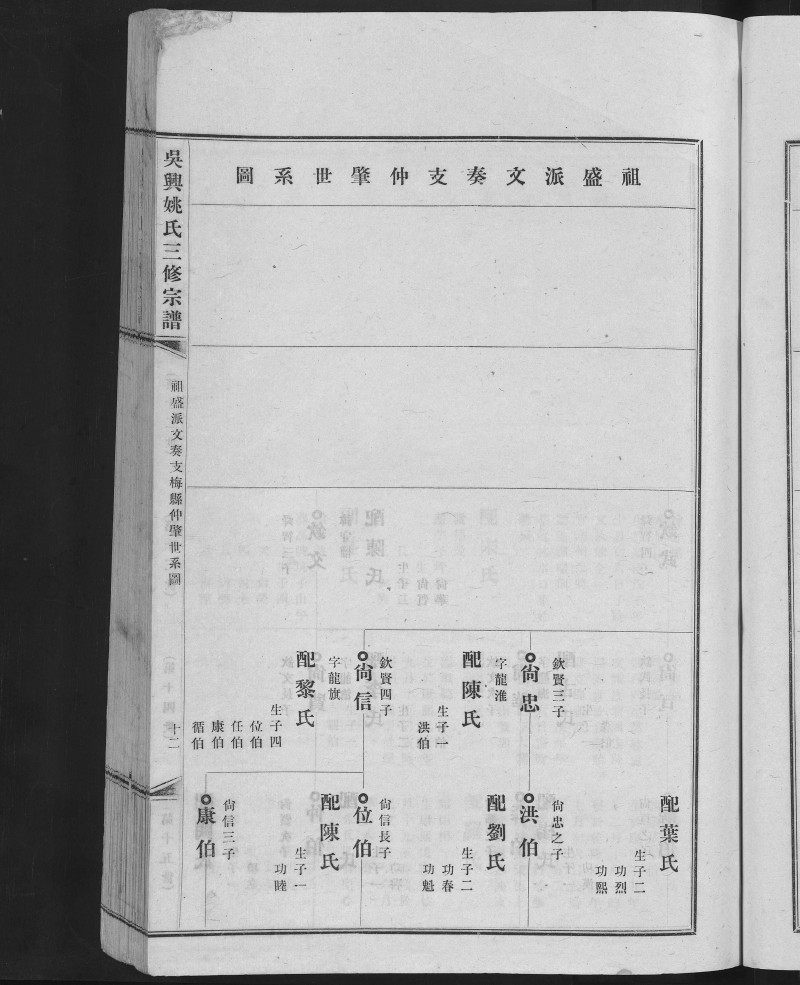 祖盛派文奏支仲肇世系圖
尙忠
欽賢三子
字龍淮
配陳氏
生子一
洪伯
尙信
欽賢四子
字龍旗
配黎氏
生子四
位伯
任伯
康伯
循伯
配葉氏
生子二
功烈
功熙
洪伯
尙忠之子
配劉氏
生子二
功春
功魁
位伯
尙信長子
配陳氏
生子一
功睦
康伯
尙信三子
吳興姚氏三修宗譜
祖盛派文奏支梅縣仲肇世系圖
十二